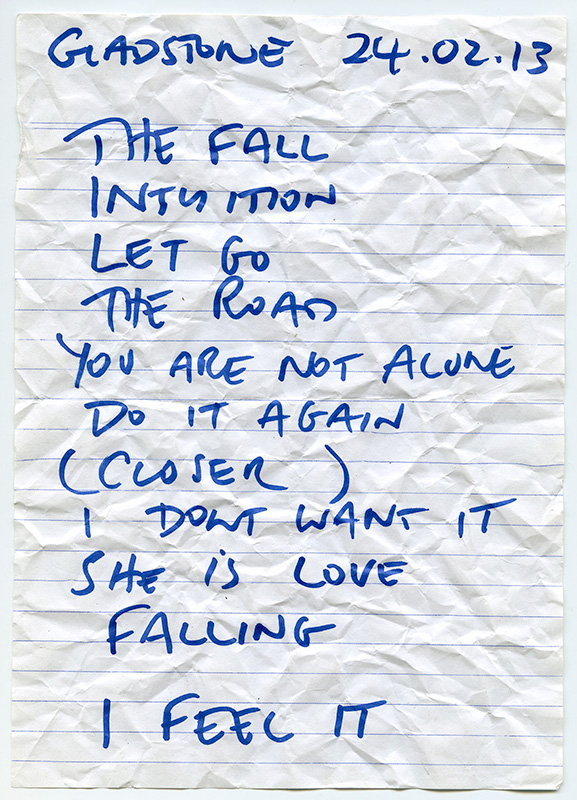 GLADSTONE 24.02.13
THE FALL
INTUITION
LET GO
THE ROAD
YOU ARE NOT ALONE
DO IT AGAIN
(CLOSER)
I DONT WANT IT
SHE IS LOVE
FALLING
I FEEL IT